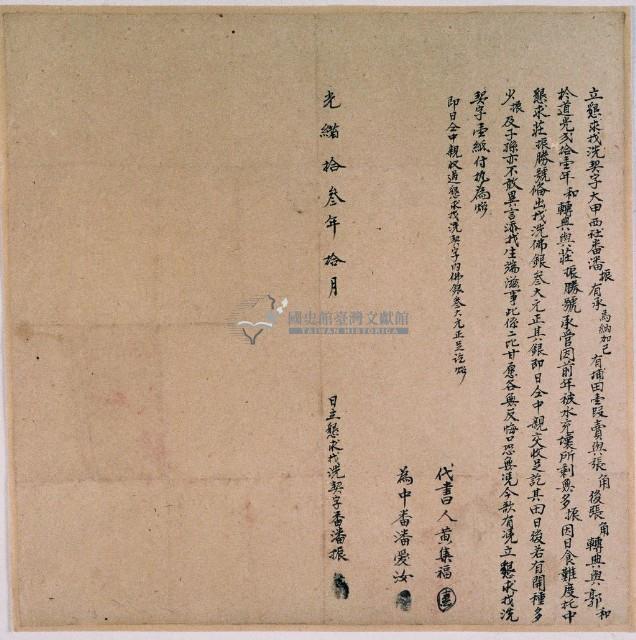 立懇求找洗契字大甲西社番潘振有承烏納加己有埔田壹段賣與張角後張角轉典與郭和
於道光貳拾壹年和轉典與莊振勝號承管因前年被水充壞所剩無多振因日食難度托中
懇求莊振勝號俻出找洗佛銀叁大元正其銀即日仝中親交收足訖其田日後若有開種多
少振及子孫亦不敢異言添找生端滋事此係二比甘愿各無反悔口恐無憑今欲有憑立懇求找洗
契字壹紙付执為炤
即日仝中親收過懇求找洗契字內佛銀叁大元正足訖炤
代書人黄集福
為中番潘愛汝
光緒拾叁年拾月
日立懇求找洗契字番潘振
國史館臺灣文獻館
TAIWAN HISTORICA